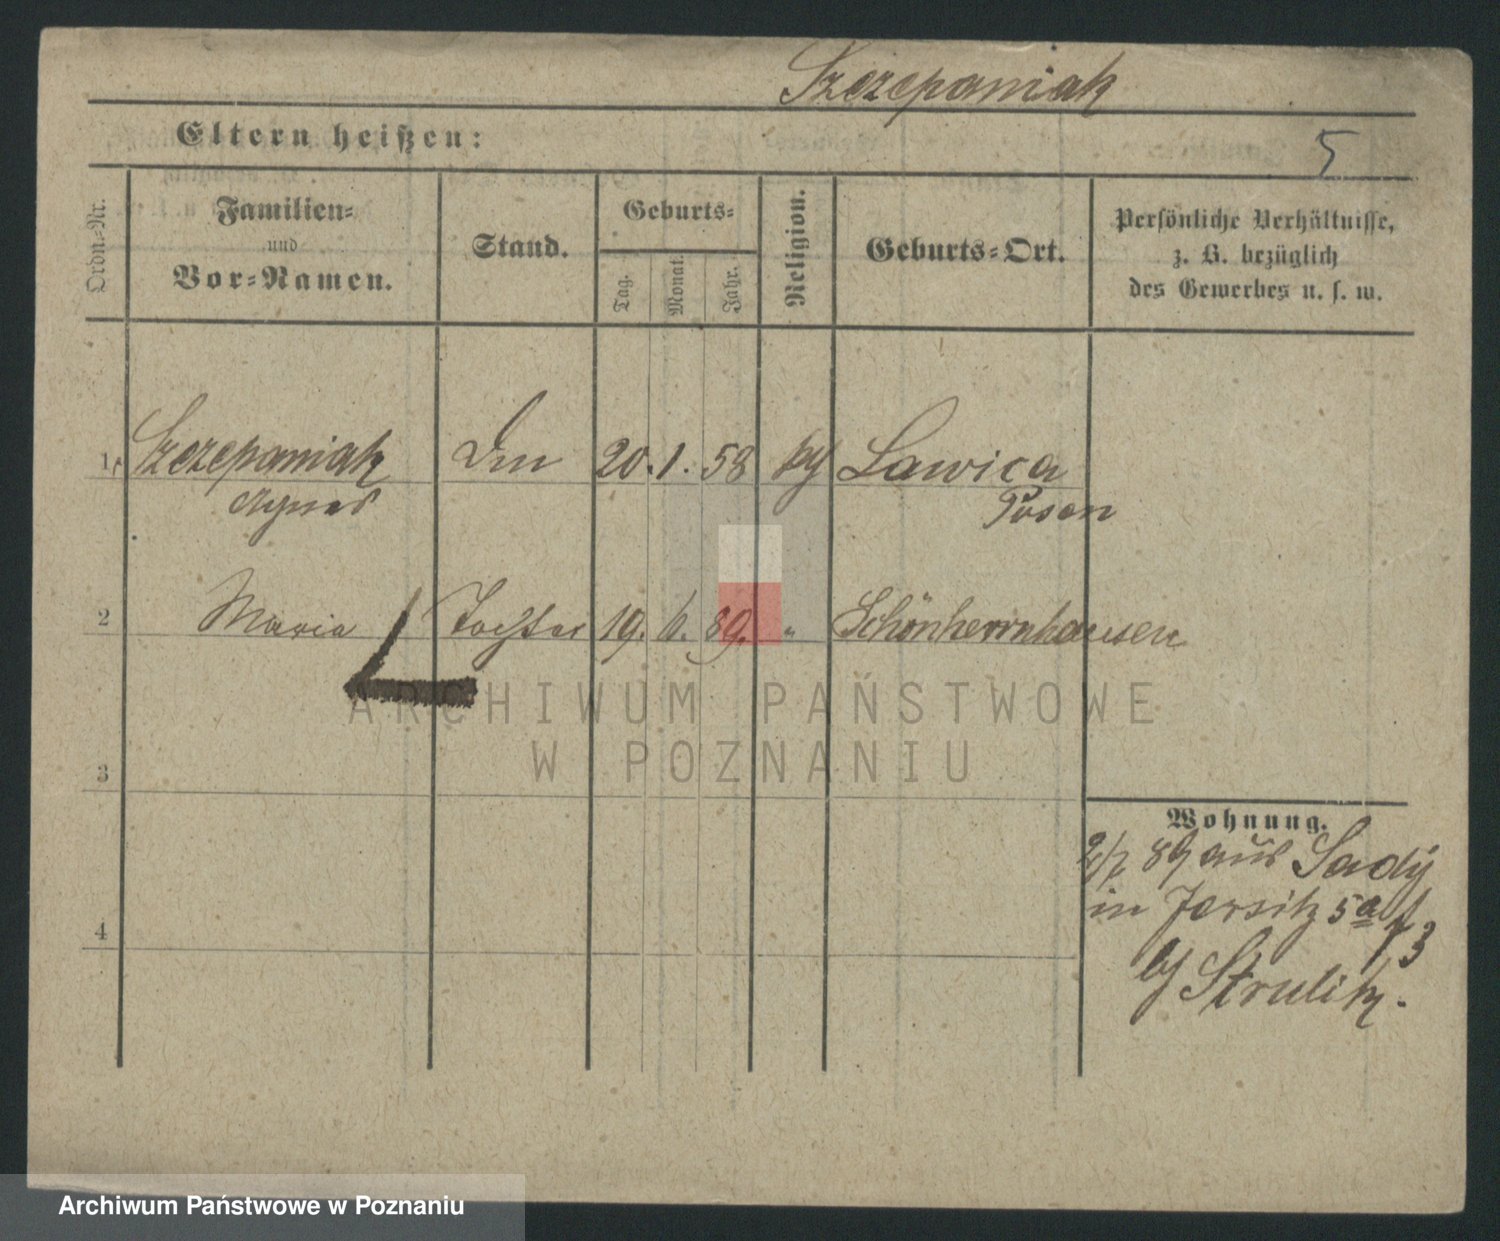 Szczepaniak
Eltern heißen:
5
Ordn.-Nr.
Familien-
und
Vor-Namen.
Stand.
Geburts-
Tag.
Monat.
Jahr.
Religion.
Geburts-Ort.
Persönliche Verhältnisse,
z. B. bezüglich
des Gewerbes u. s. w.
1 Szczepaniak 20. 1. 58 Lawica
Agnes Posen
2 Maria Tochter 19. 6. 89. " Schönherrnhausen
ARCHIWUM PAŃSTWOWE
W POZNANIU
3
Wohnung.
89 aus Sady
in Jersitz 5a
4
Archiwum Państwowe w Poznaniu